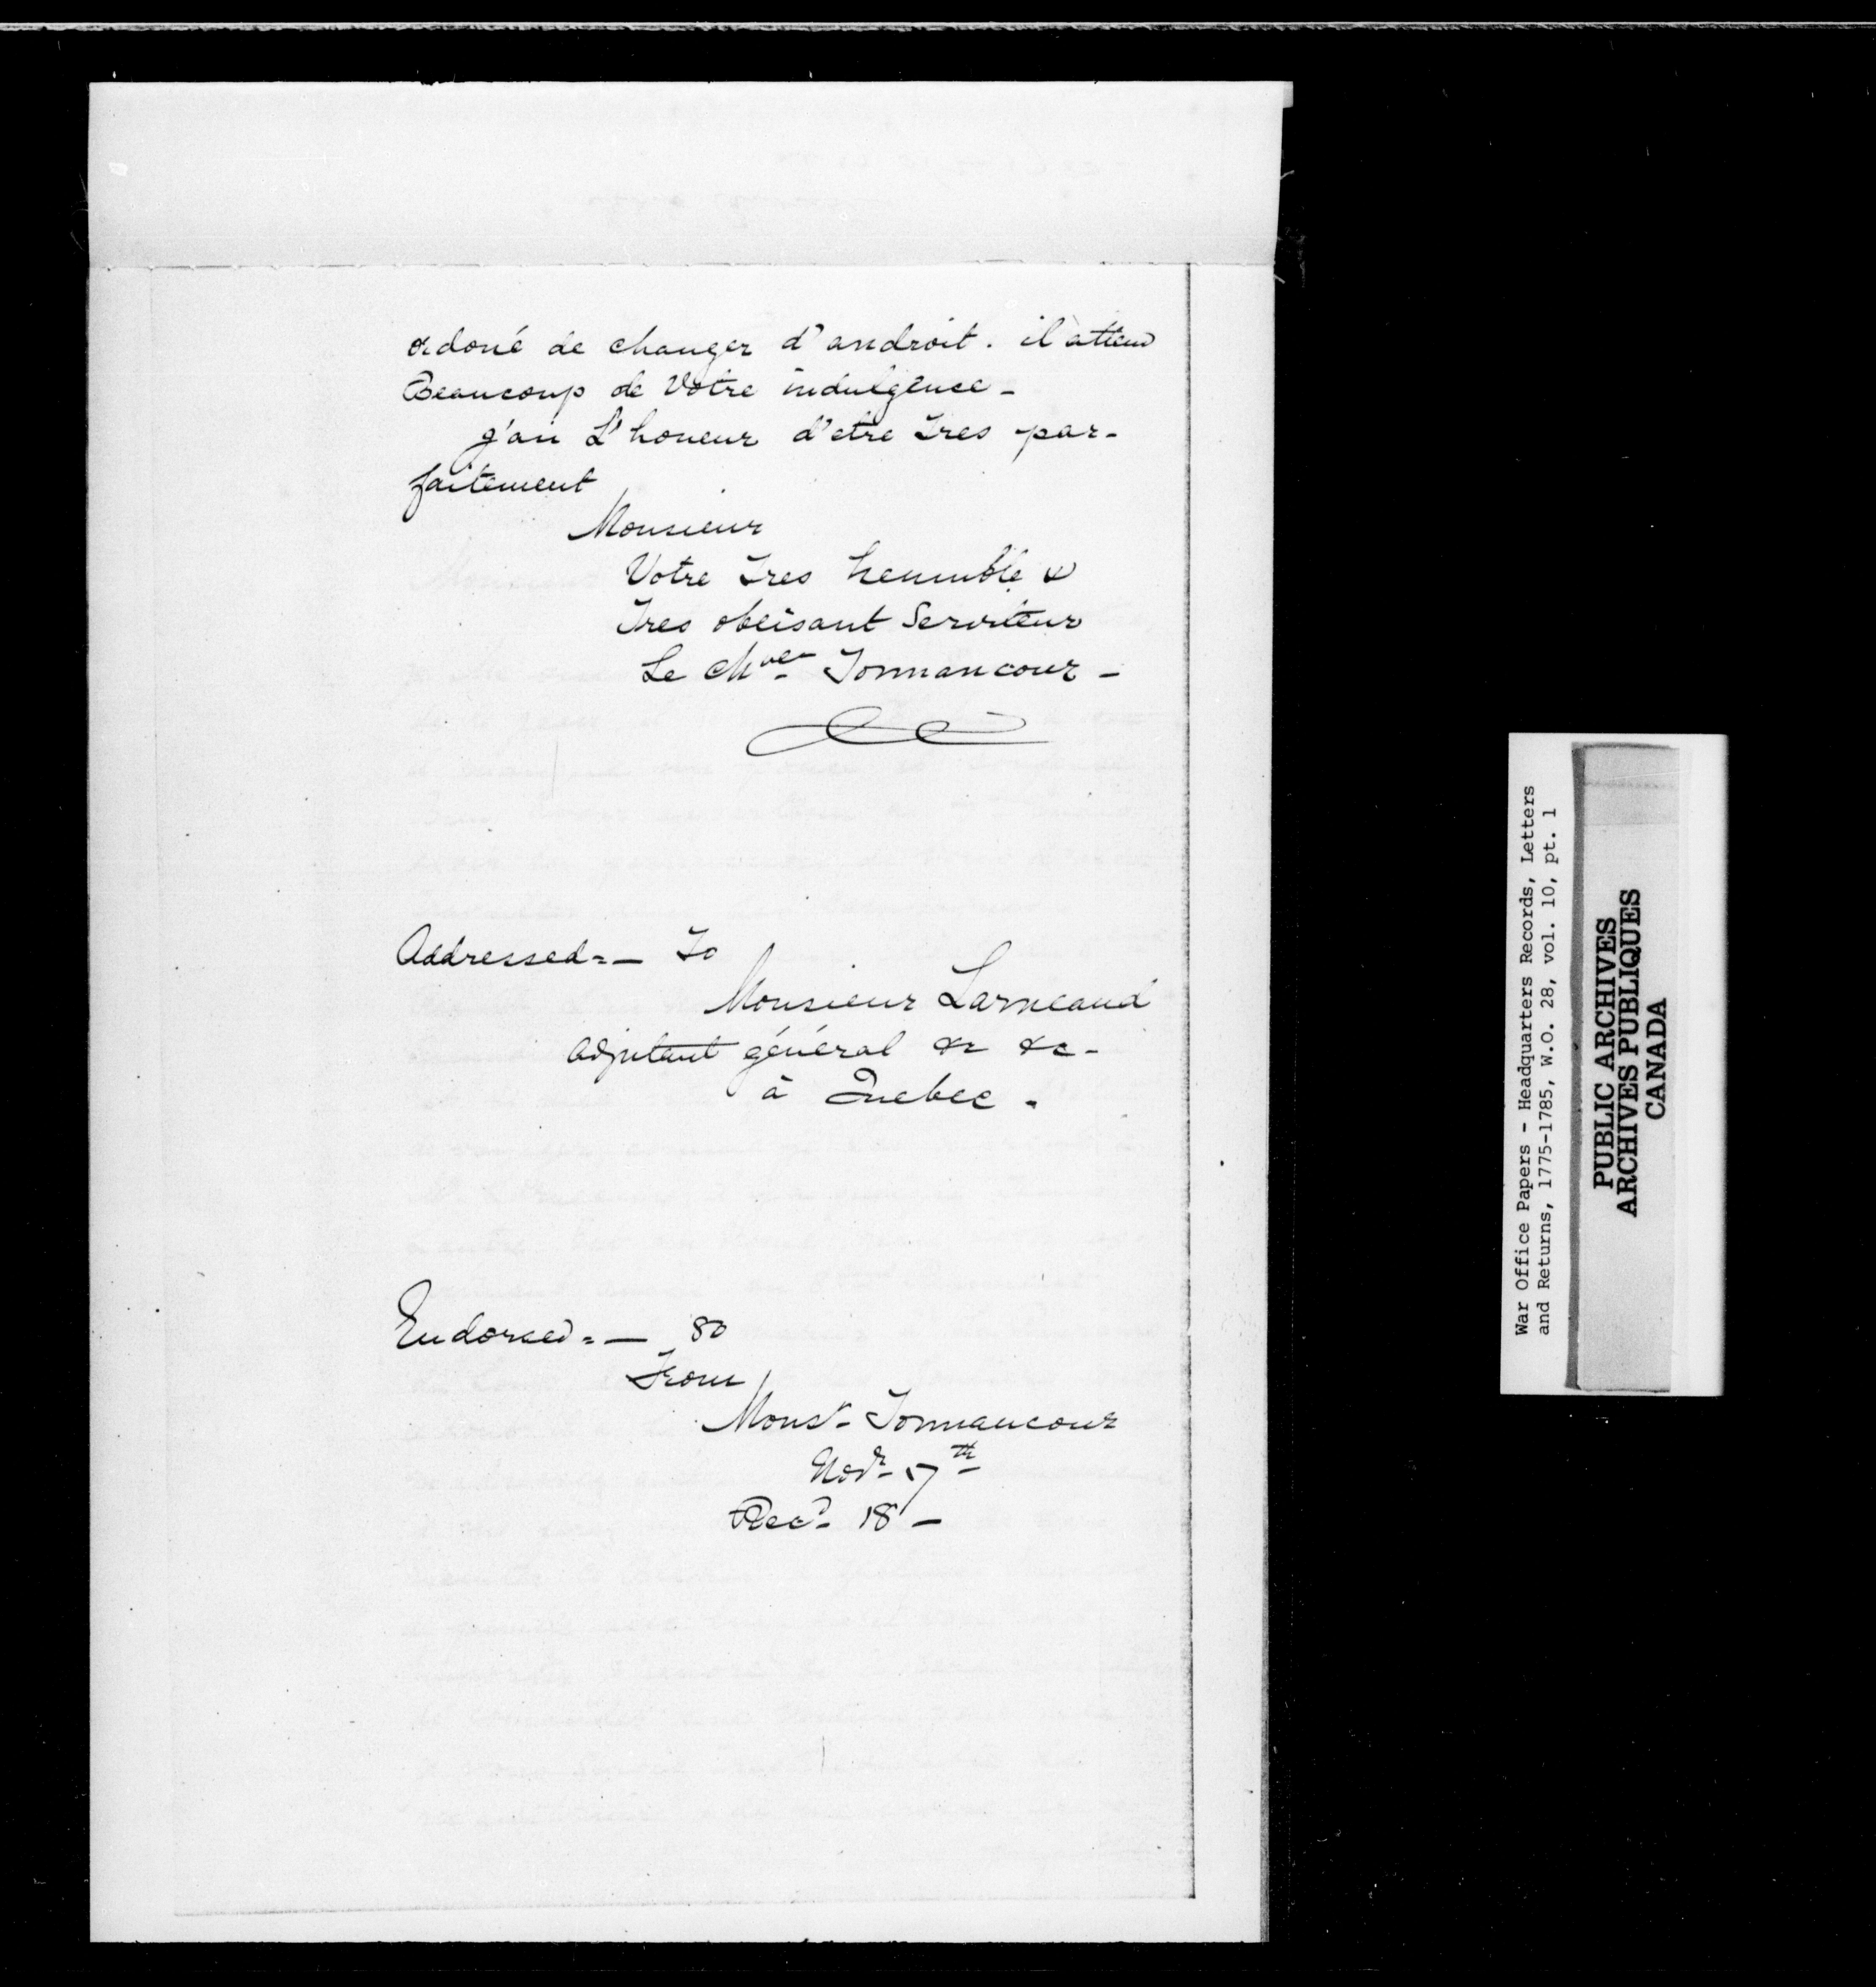 ordoné de changer d'androit. il attend
Beaucoup de Votre indulgence -
j'ai L'honeur d'etre Tres par-
faitement
Monsieur
Votre Tres heumble &
Tres obeisant Serviteur
Le Chver Tonnancour -
Addressed = - To
Monsieur Larneaud
adjutant général &c &c -
à Quebec .
Endorsed = - 80
From
Monsr Tonnancour
Novr 17th
Recd 18 -
War Office Papers - Headquarters Records, Letters
and Returns, 1775-1785, W.O. 28, vol. 10, pt. 1
PUBLIC ARCHIVES
ARCHIVES PUBLIQUES
CANADA